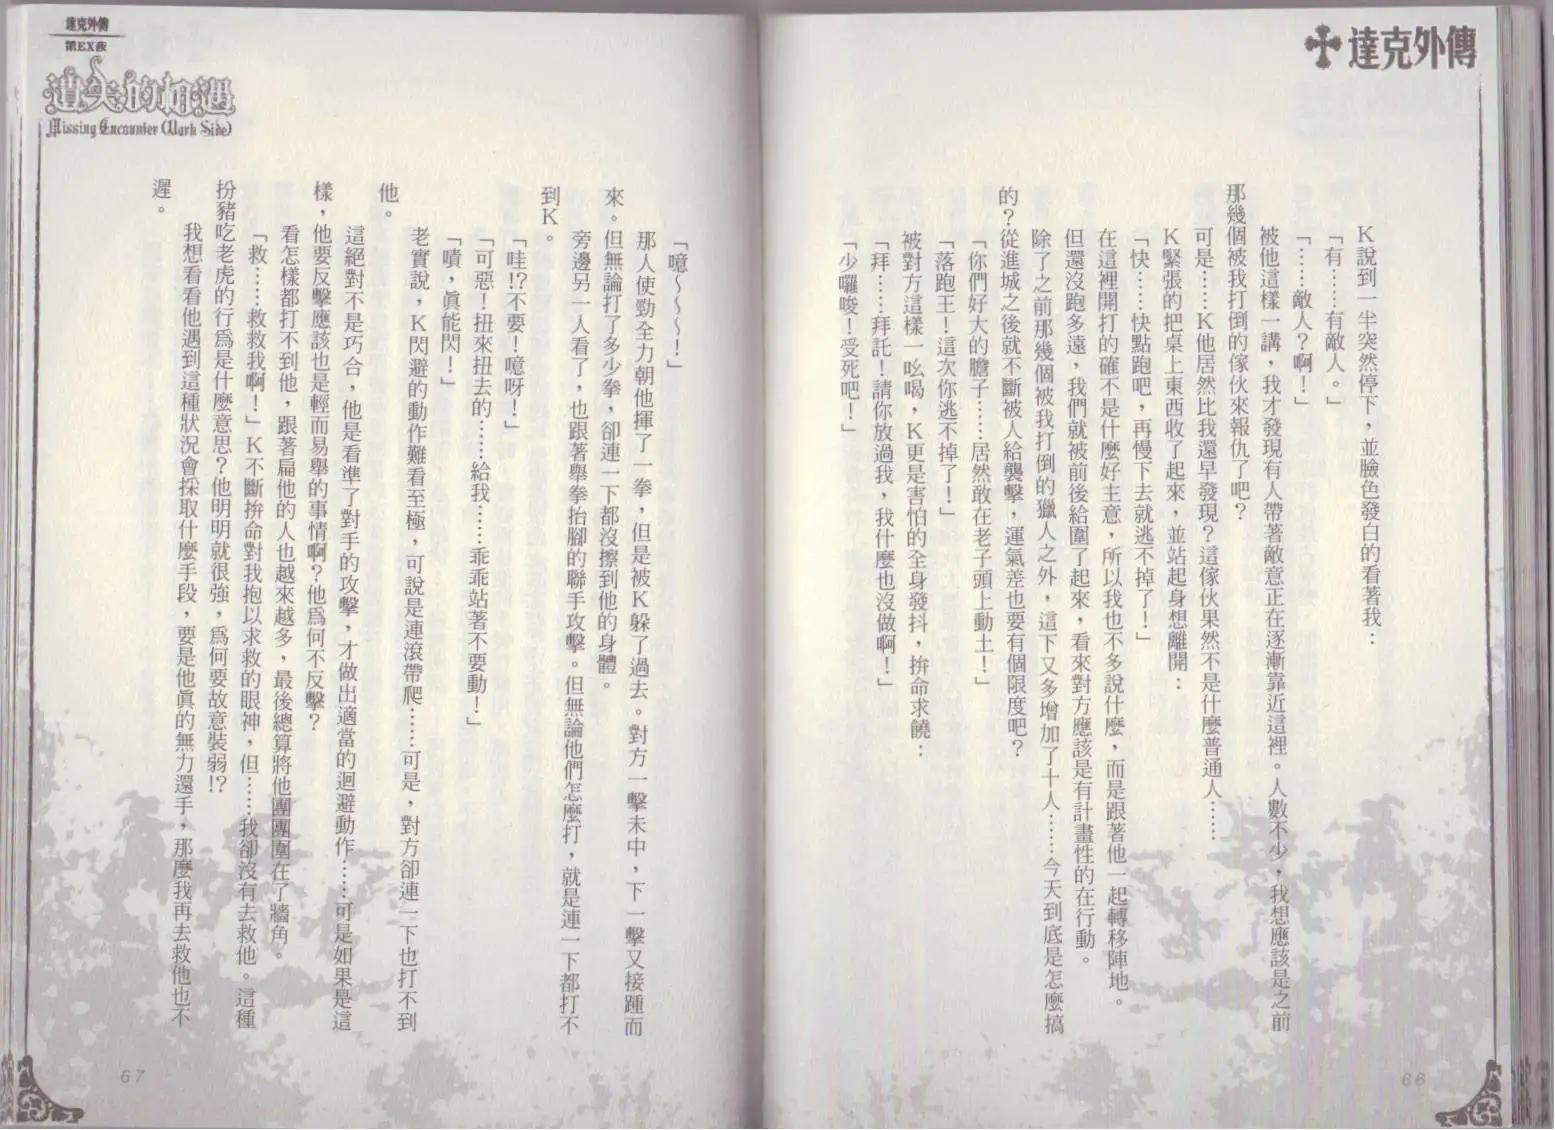 達克外傳
K說到一半突然停下，並臉色發白的看著我：
「有……有敵人。」
「……敵人？啊！」
被他這樣一講，我才發現有人帶著敵意正在逐漸靠近這裡。人數不少，我想應該是之前
那幾個被我打倒的傢伙來報仇了吧？
可是……K他居然比我還早發現？這傢伙果然不是什麼普通人……
K緊張的把桌上東西收了起來，並站起身想離開：
「快……快點跑吧，再慢下去就逃不掉了！」
在這裡開打的確不是什麼好主意，所以我也不多說什麼，而是跟著他一起轉移陣地。
但還沒跑多遠，我們就被前後給圍了起來，看來對方應該是有計畫性的在行動。
除了之前那幾個被我打倒的獵人之外，這下又多增加了十人……今天到底是怎麼搞
的？從進城之後就不斷被人給襲擊，運氣差也要有個限度吧？
「你們好大的膽子……居然敢在老子頭上動土！」
「落跑王！這次你逃不掉了！」
被對方這樣一吆喝，K更是害怕的全身發抖，拚命求饒：
「拜……拜託！請你放過我，我什麼也沒做啊！」
「少囉唆！受死吧！」
66
達克外傳
第EX夜
遺失的相遇
Missing Encounter (Dark Side)
「噫～～～！」
那人使勁全力朝他揮了一拳，但是被K躲了過去。對方一擊未中，下一擊又接踵而
來。但無論打了多少拳，卻連一下都沒擦到他的身體。
旁邊另一人看了，也跟著舉拳抬腳的聯手攻擊。但無論他們怎麼打，就是連一下都打不
到K。
「哇!?不要！噫呀！」
「可惡！扭來扭去的……給我……乖乖站著不要動！」
「嘖，眞能閃！」
老實說，K閃避的動作難看至極，可說是連滾帶爬……可是，對方卻連一下也打不到
他。
這絕對不是巧合，他是看準了對手的攻擊，才做出適當的迴避動作……可是如果是這
樣，他要反擊應該也是輕而易舉的事情啊？他爲何不反擊？
看怎樣都打不到他，跟著扁他的人也越來越多，最後總算將他團團圍在了牆角。
「救……救救我啊！」K不斷拚命對我抱以求救的眼神，但……我卻沒有去救他。這種
扮豬吃老虎的行爲是什麼意思？他明明就很強，爲何要故意裝弱!?
我想看看他遇到這種狀況會採取什麼手段，要是他眞的無力還手，那麼我再去救他也不
遲。
67